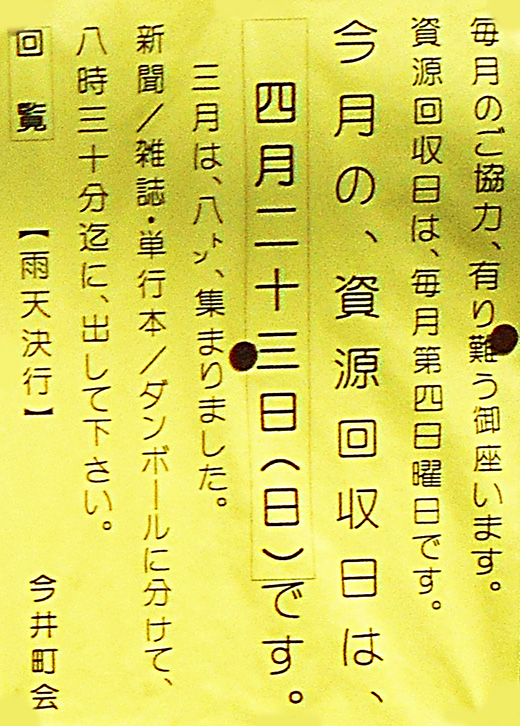 毎月のご協力、有り難う御座います。
資源回収日は、毎月第四日曜日です。
今月の、資源回収日は、
四月二十三日(日)です。
三月は、八トン、集まりました。
新聞/雑誌・単行本/ダンボールに分けて、
八時三十分迄に、出して下さい。
回覧 【雨天決行】 今井町会